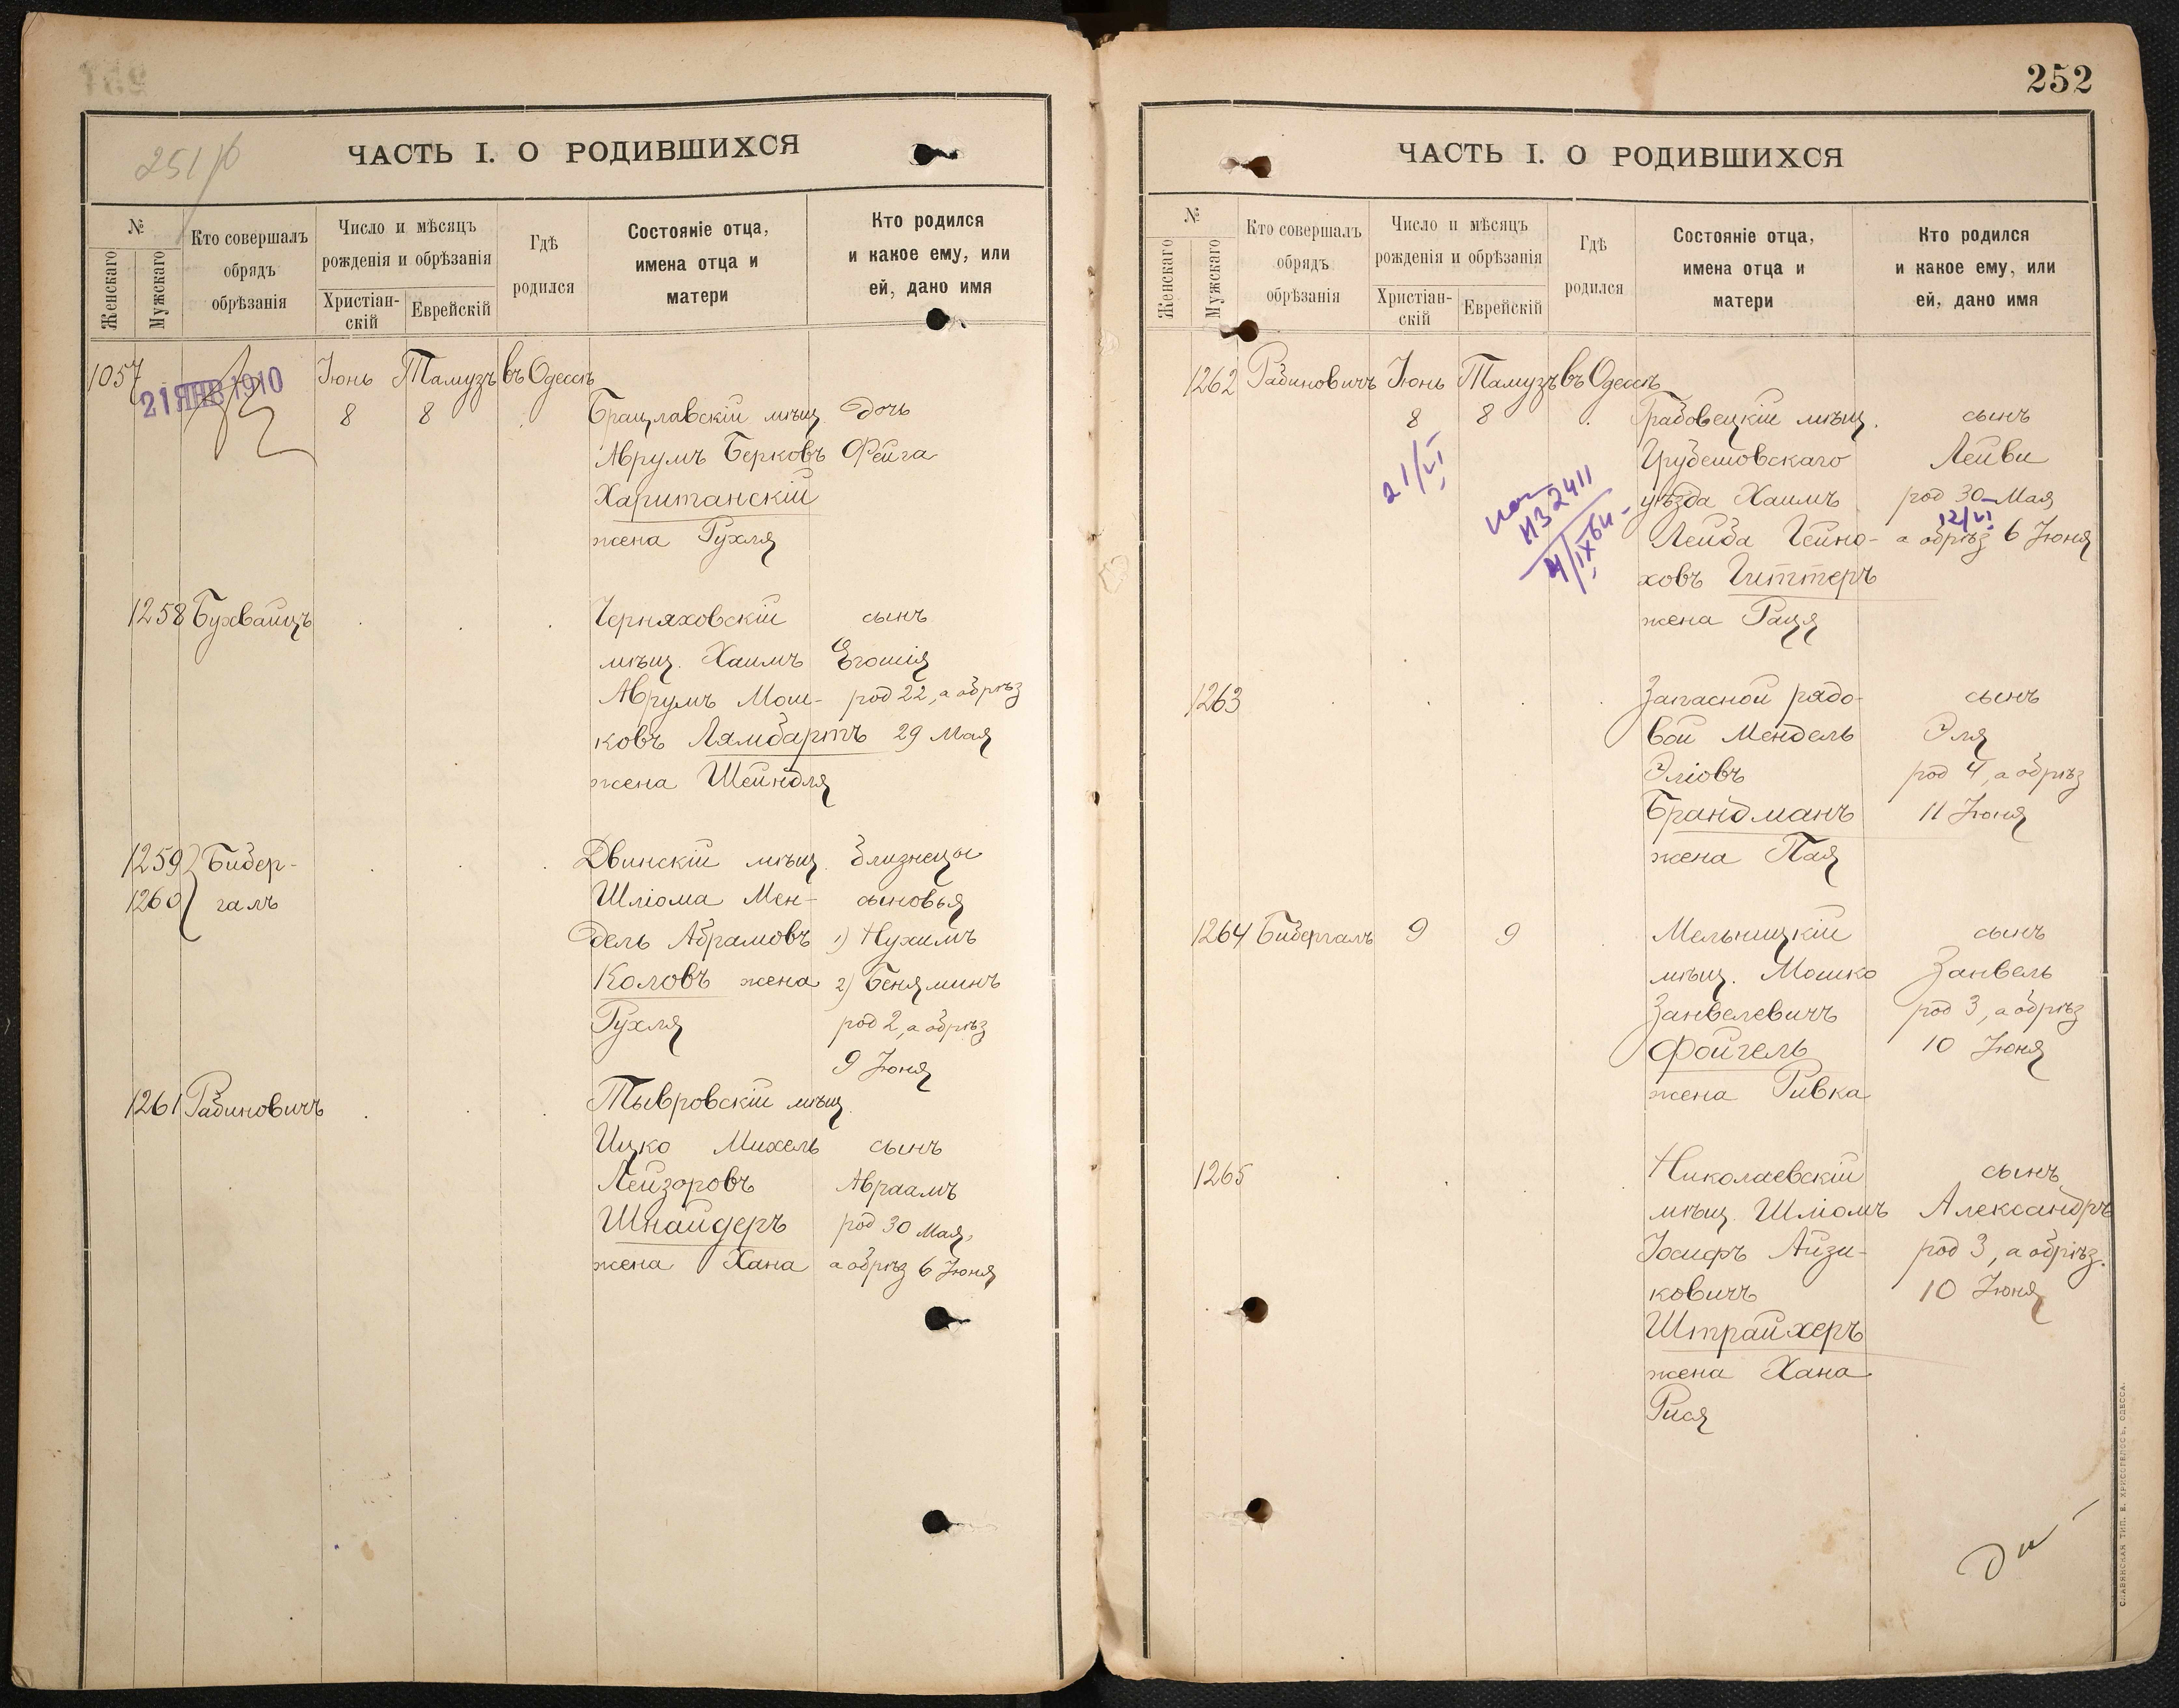 251/б
ЧАСТЬ I. О РОДИВШИХСЯ
№
Женскаго
Мужскаго
Кто совершалъ
обрядъ
обрѣзанія
Число и мѣсяцъ
рожденія и обрѣзанія
Христіан-
скій
Еврейскій
Гдѣ
родился
Состояніе отца,
имена отца и
матери
Кто родился
и какое ему, или
ей, дано имя
1057 Іюнь Тамузъ въ Одессѣ
21 ЯНВ 1910
8 8 Брацлавскій мѣщ. дочь
Аврумъ Берковъ Фейга
Хаританскій
жена Рухля
1258 Бухвайцъ Черняховскій сынъ
мѣщ. Хаимъ Егошія
Аврумъ Мош- род 22, а обрѣз
ковъ Лямбартъ 29 Мая
жена Шейндля
1259 Бибер- Двинскій мѣщ. близнецы
1260 галъ Шліома Мен- сыновья
дель Абрамовъ 1) Нухимъ
Коловъ жена 2) Беняминъ
Рухля род 2, а обрѣз
9 Іюня
1261 Рабиновичъ Тывровскій мѣщ.
Ицко Михель сынъ
Лейзоровъ Авраамъ
Шнайдеръ род 30 Мая,
жена Хана а обрѣз 6 Іюня
252
ЧАСТЬ I. О РОДИВШИХСЯ
№
Женскаго
Мужскаго
Кто совершалъ
обрядъ
обрѣзанія
Число и мѣсяцъ
рожденія и обрѣзанія
Христіан-
скій
Еврейскій
Гдѣ
родился
Состояніе отца,
имена отца и
матери
Кто родился
и какое ему, или
ей, дано имя
1262 Рабиновичъ Іюнь Тамузъ въ Одессѣ
8 8 Грабовецкій мѣщ. сынъ
Грубешовскаго Лейви
уѣзда Хаимъ род 30 Мая
21/VI
12/VI
Лейба Гейно- а обрѣз 6 Іюня
НЗ 2411
4/IX 64
ховъ Гиттеръ
жена Раця
1263 Запасной рядо- сынъ
вой Мендель Эля
Эліовъ род 4, а обрѣз
Брандманъ 11 Іюня
жена Пая
1264 Бибергалъ 9 9 Мельницкій сынъ
мѣщ. Мошко Занвель
Занвелевичъ род 3, а обрѣз
Фойгель 10 Іюня
жена Ривка
1265 Николаевскій сынъ
мѣщ. Шліомъ Александръ
Іосифъ Айзи- род 3, а обрѣз.
ковичъ 10 Іюня
Штрайхеръ
жена Хана
Рися
СЛАВЯНСКАЯ ТИП. Е. ХРИСОГЕЛОСЪ, ОДЕССА.